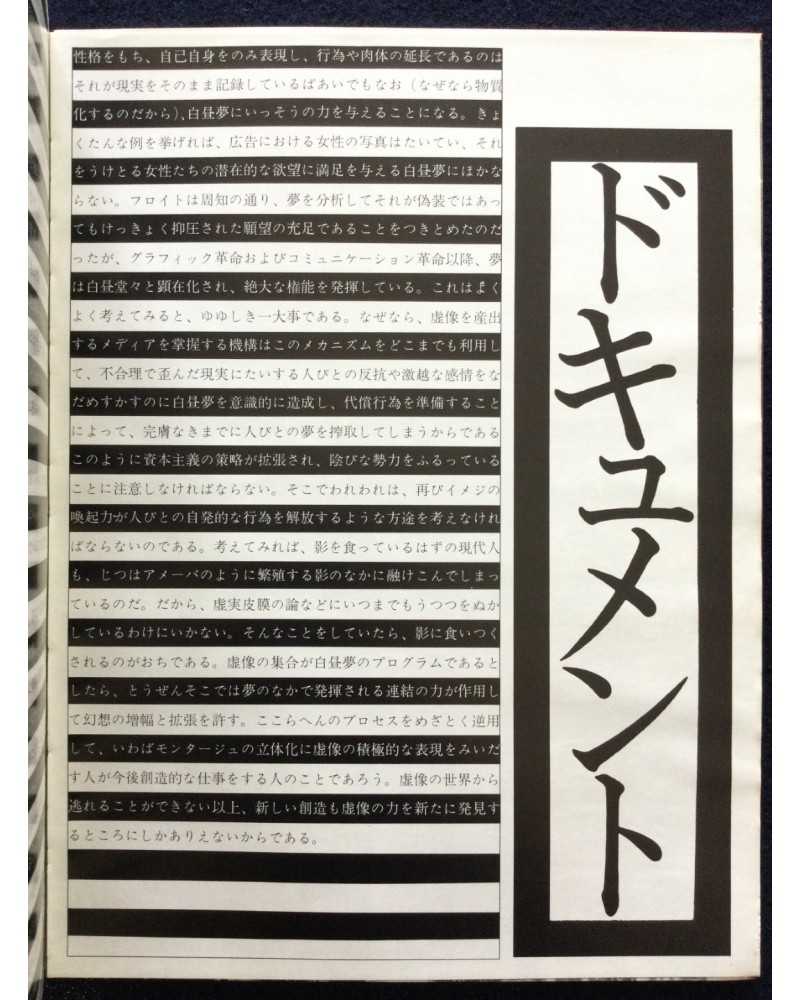 性格をもち、自己自身をのみ表現し、行為や肉体の延長であるのは
それが現実をそのまま記録しているばあいでもなお（なぜなら物質
化するのだから）、白昼夢にいっそうの力を与えることになる。きょ
くたんな例を挙げれば、広告における女性の写真はたいてい、それ
をうけとる女性たちの潜在的な欲望に満足を与える白昼夢にほかな
らない。フロイトは周知の通り、夢を分析してそれが偽装ではあっ
てもけっきょく抑圧された願望の充足であることをつきとめたのだ
ったが、グラフィック革命およびコミュニケーション革命以降、夢
は白昼堂々と顕在化され、絶大な権能を発揮している。これはよく
よく考えてみると、ゆゆしき一大事である。なぜなら、虚像を産出
するメディアを掌握する機構はこのメカニズムをどこまでも利用し
て、不合理で歪んだ現実にたいする人びとの反抗や激越な感情をな
だめすかすのに白昼夢を意識的に造成し、代償行為を準備すること
によって、完膚なきまでに人びとの夢を搾取してしまうからである
このように資本主義の策略が拡張され、陰びな勢力をふるっている
ことに注意しなければならない。そこでわれわれは、再びイメジの
喚起力が人びとの自発的な行為を解放するような方途を考えなけれ
ばならないのである。考えてみれば、影を食っているはずの現代人
も、じつはアメーバのように繁殖する影のなかに融けこんでしまっ
ているのだ。だから、虚実皮膜の論などにいつまでもうつつをぬか
しているわけにいかない。そんなことをしていたら、影に食いつく
されるのがおちである。虚像の集合が白昼夢のプログラムであると
したら、とうぜんそこでは夢のなかで発揮される連結の力が作用し
て幻想の増幅と拡張を許す。ここらへんのプロセスをめざとく逆用
して、いわばモンタージュの立体化に虚像の積極的な表現をみいだ
す人が今後創造的な仕事をする人のことであろう。虚像の世界から
逃れることができない以上、新しい創造も虚像の力を新たに発見す
るところにしかありえないからである。
ドキュメント